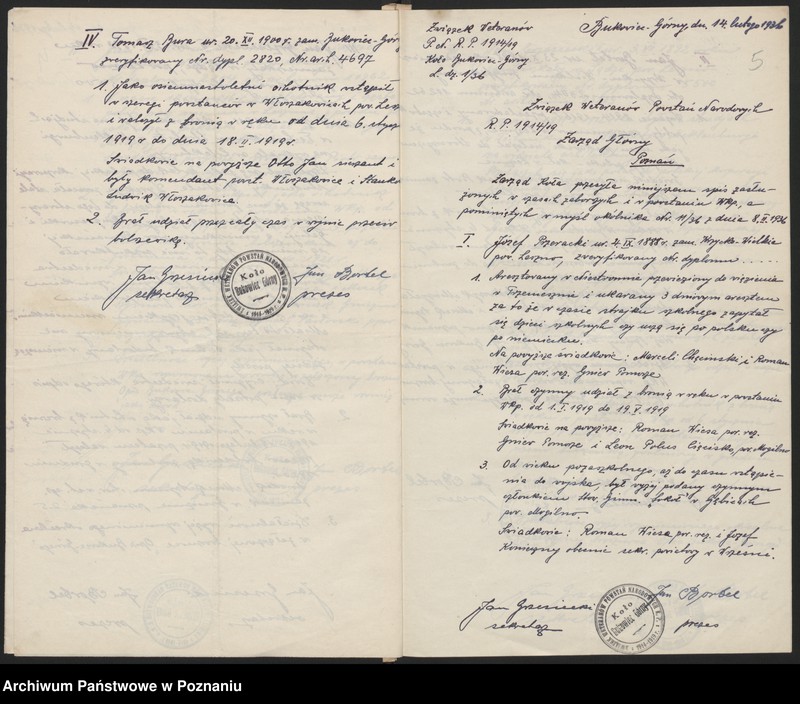 IV. Tomasz Bura ur. 20.XII.1900 r. zam. Bukowiec-Górny
zweryfikowany Nr. dypl. 2820, Nr. ar. h. 4697
1. Jako osiemnastoletni ochotnik wstąpił
w szeregi powstańców w Włoszakowicach pow. Lesz
i walczył z bronią w ręku od dnia 6. stycz
1919 r do dnia 18.II.1919 r.
Świadkowie na powyższe Otto Jan sierżant i
były komendant post. Włoszakowice i
Ludwik Włoszakowice.
2. Brał udział przez cały czas w wojnie przeciw
bolszewiką.
Jan
sekretarz
Koło
Bukowiec Górny
Jan Borbel
prezes
Związek Weteranów
P. N. R. P. 1914/19
Koło Bukowiec-Górny
L. dz. 1/36
Bukowiec-Górny, dn. 14. lutego 1936
5
Związek Weteranów Powstań Narodowych
R. P. 1914/19
Zarząd Główny
Poznań
Zarząd Koła przesyła niniejszem spis zasłu-
żonych w czasach zaborczych i w powstaniu Wkp. a
pominiętych w myśl okólnika Nr. 11/36 z dnia 8.II.1936
I. Józef ur. 4.IX.1888 r. zam. Krzycko-Wielkie
pow. Leszno, zweryfikowany Nr. dyplomu .....
1. Aresztowany w przewieziony do więzienia
w Trzemesznie i ukarany 3 dniowym aresztem
za to że w czasie strajku szkolnego zapytał
się dzieci szkolnych czy uczą się po polsku czy
po niemiecku.
Na powyższe świadkowie: Marceli Chęciński, i Roman
Wiesa por. rez. Gniew Pomorze
2. Brał czynny udział z bronią w ręku w powstaniu
Wkp. od 1.I.1919 do 19.V.1919
Świadkowie na powyższe: Roman Wiesa por. rez.
Gniew Pomorze i Leon Polus pow. Mogilno
3. Od wieku pozaszkolnego, aż do czasu wstąpie-
nia do wojska, był wyżej podany czynnym
członkiem tow. Gimn. Sokół w Gębicach
pow. Mogilno.
Świadkowie: Roman Wiesa, por. rez. i Józef
Konieczny obecnie sekr. w Wrześni.
Jan
sekretarz
Koło
Bukowiec Górny
Jan Borbel
prezes
Archiwum Państwowe w Poznaniu